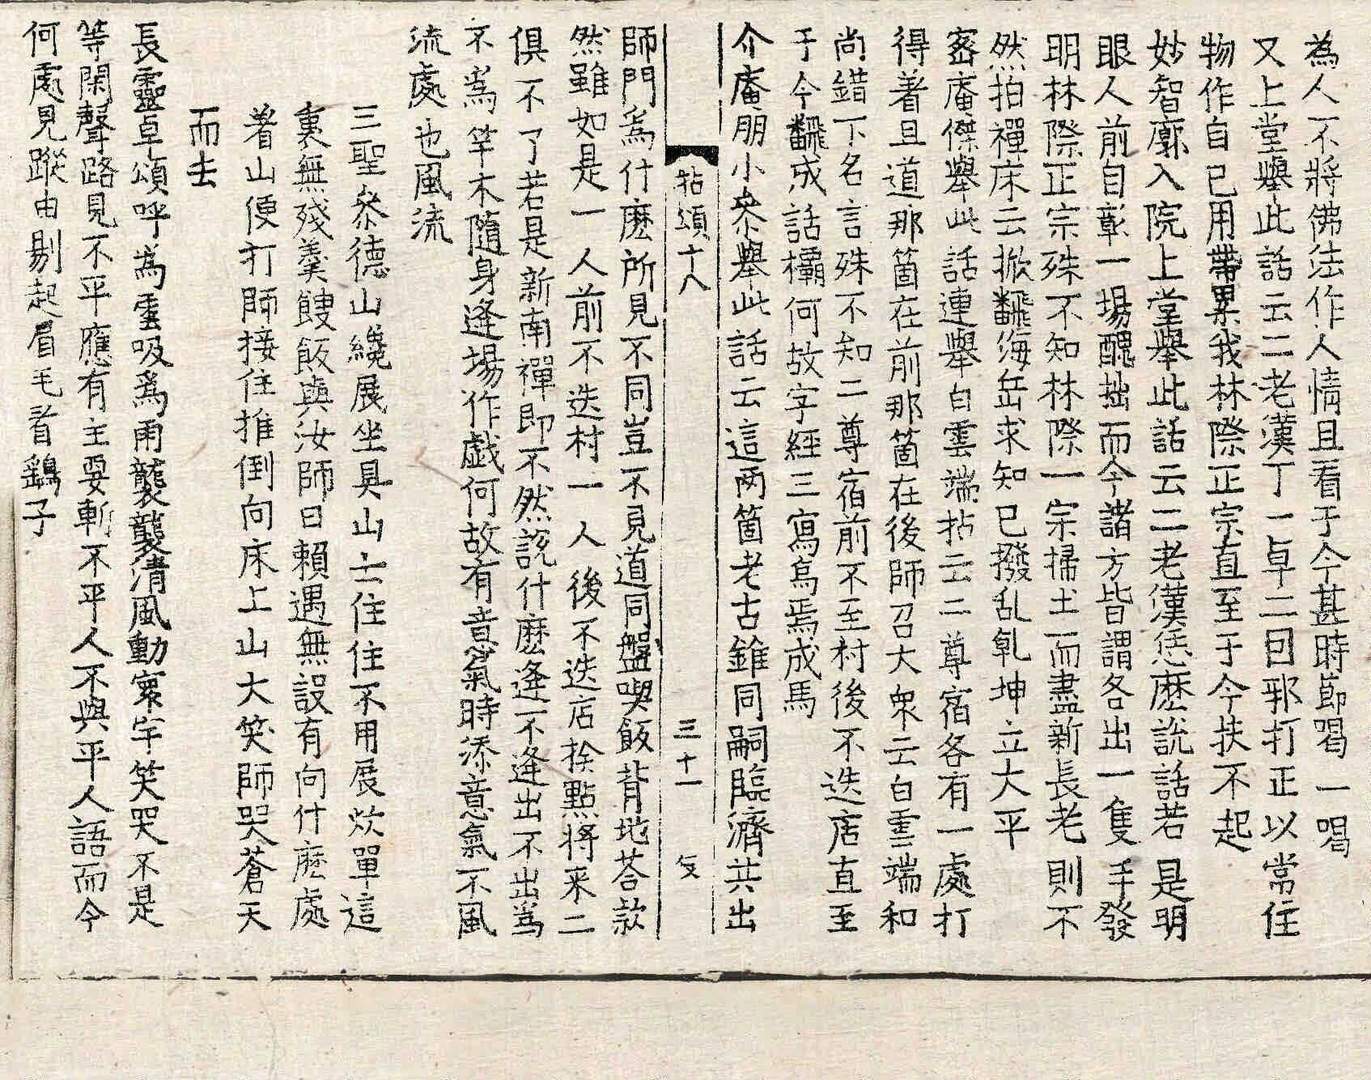 為人不將佛法作人情且看于今甚時節喝一喝
又上堂舉此話云二老漢丁一卓二回邪打正以常住
物作自己用帶累我林際正宗直至于今扶不起
妙智廓入院上堂舉此話云二老漢恁麽說話若是明
眼人前自彰一場醜拙而今諸方皆謂各出一隻手發
明林際正宗殊不知林際一宗掃土而盡新長老則不
然拍禪床云掀飜海岳求知已撥乱乹坤立大平
密庵傑舉此話連舉白雲端拈云二尊宿各有一處打
得著且道那箇在前那箇在後師召大衆云白雲端和
尚錯下名言殊不知二尊宿前不至村後不迭店直至
于今飜成話欛何故字經三寫烏焉成馬
介庵朋小叅舉此話云這两箇老古錐同嗣臨濟共出
拈頌十八 三十一
師門爲什麽所見不同豈不見道同盤喫飯背地荅款
然雖如是一人前不迭村一人後不迭店挨點将来二
俱不了若是新南禪即不然說什麽逢不逢出不出爲
不爲竿木隨身逢場作戯何故有意氣時添意氣不風
流處也風流
三聖叅德山纔展坐具山云住住不用展炊單這
裏無殘羹餿飯與汝師曰賴遇無設有向什麽處
着山便打師接住推倒向床上山大笑師哭蒼天
而去
長靈卓頌呼爲雲吸爲雨襲襲清風動寰宇笑哭不是
等閑聲路見不平應有主要斬不平人不與平人語而今
何處見蹤由剔起眉毛看鷂子